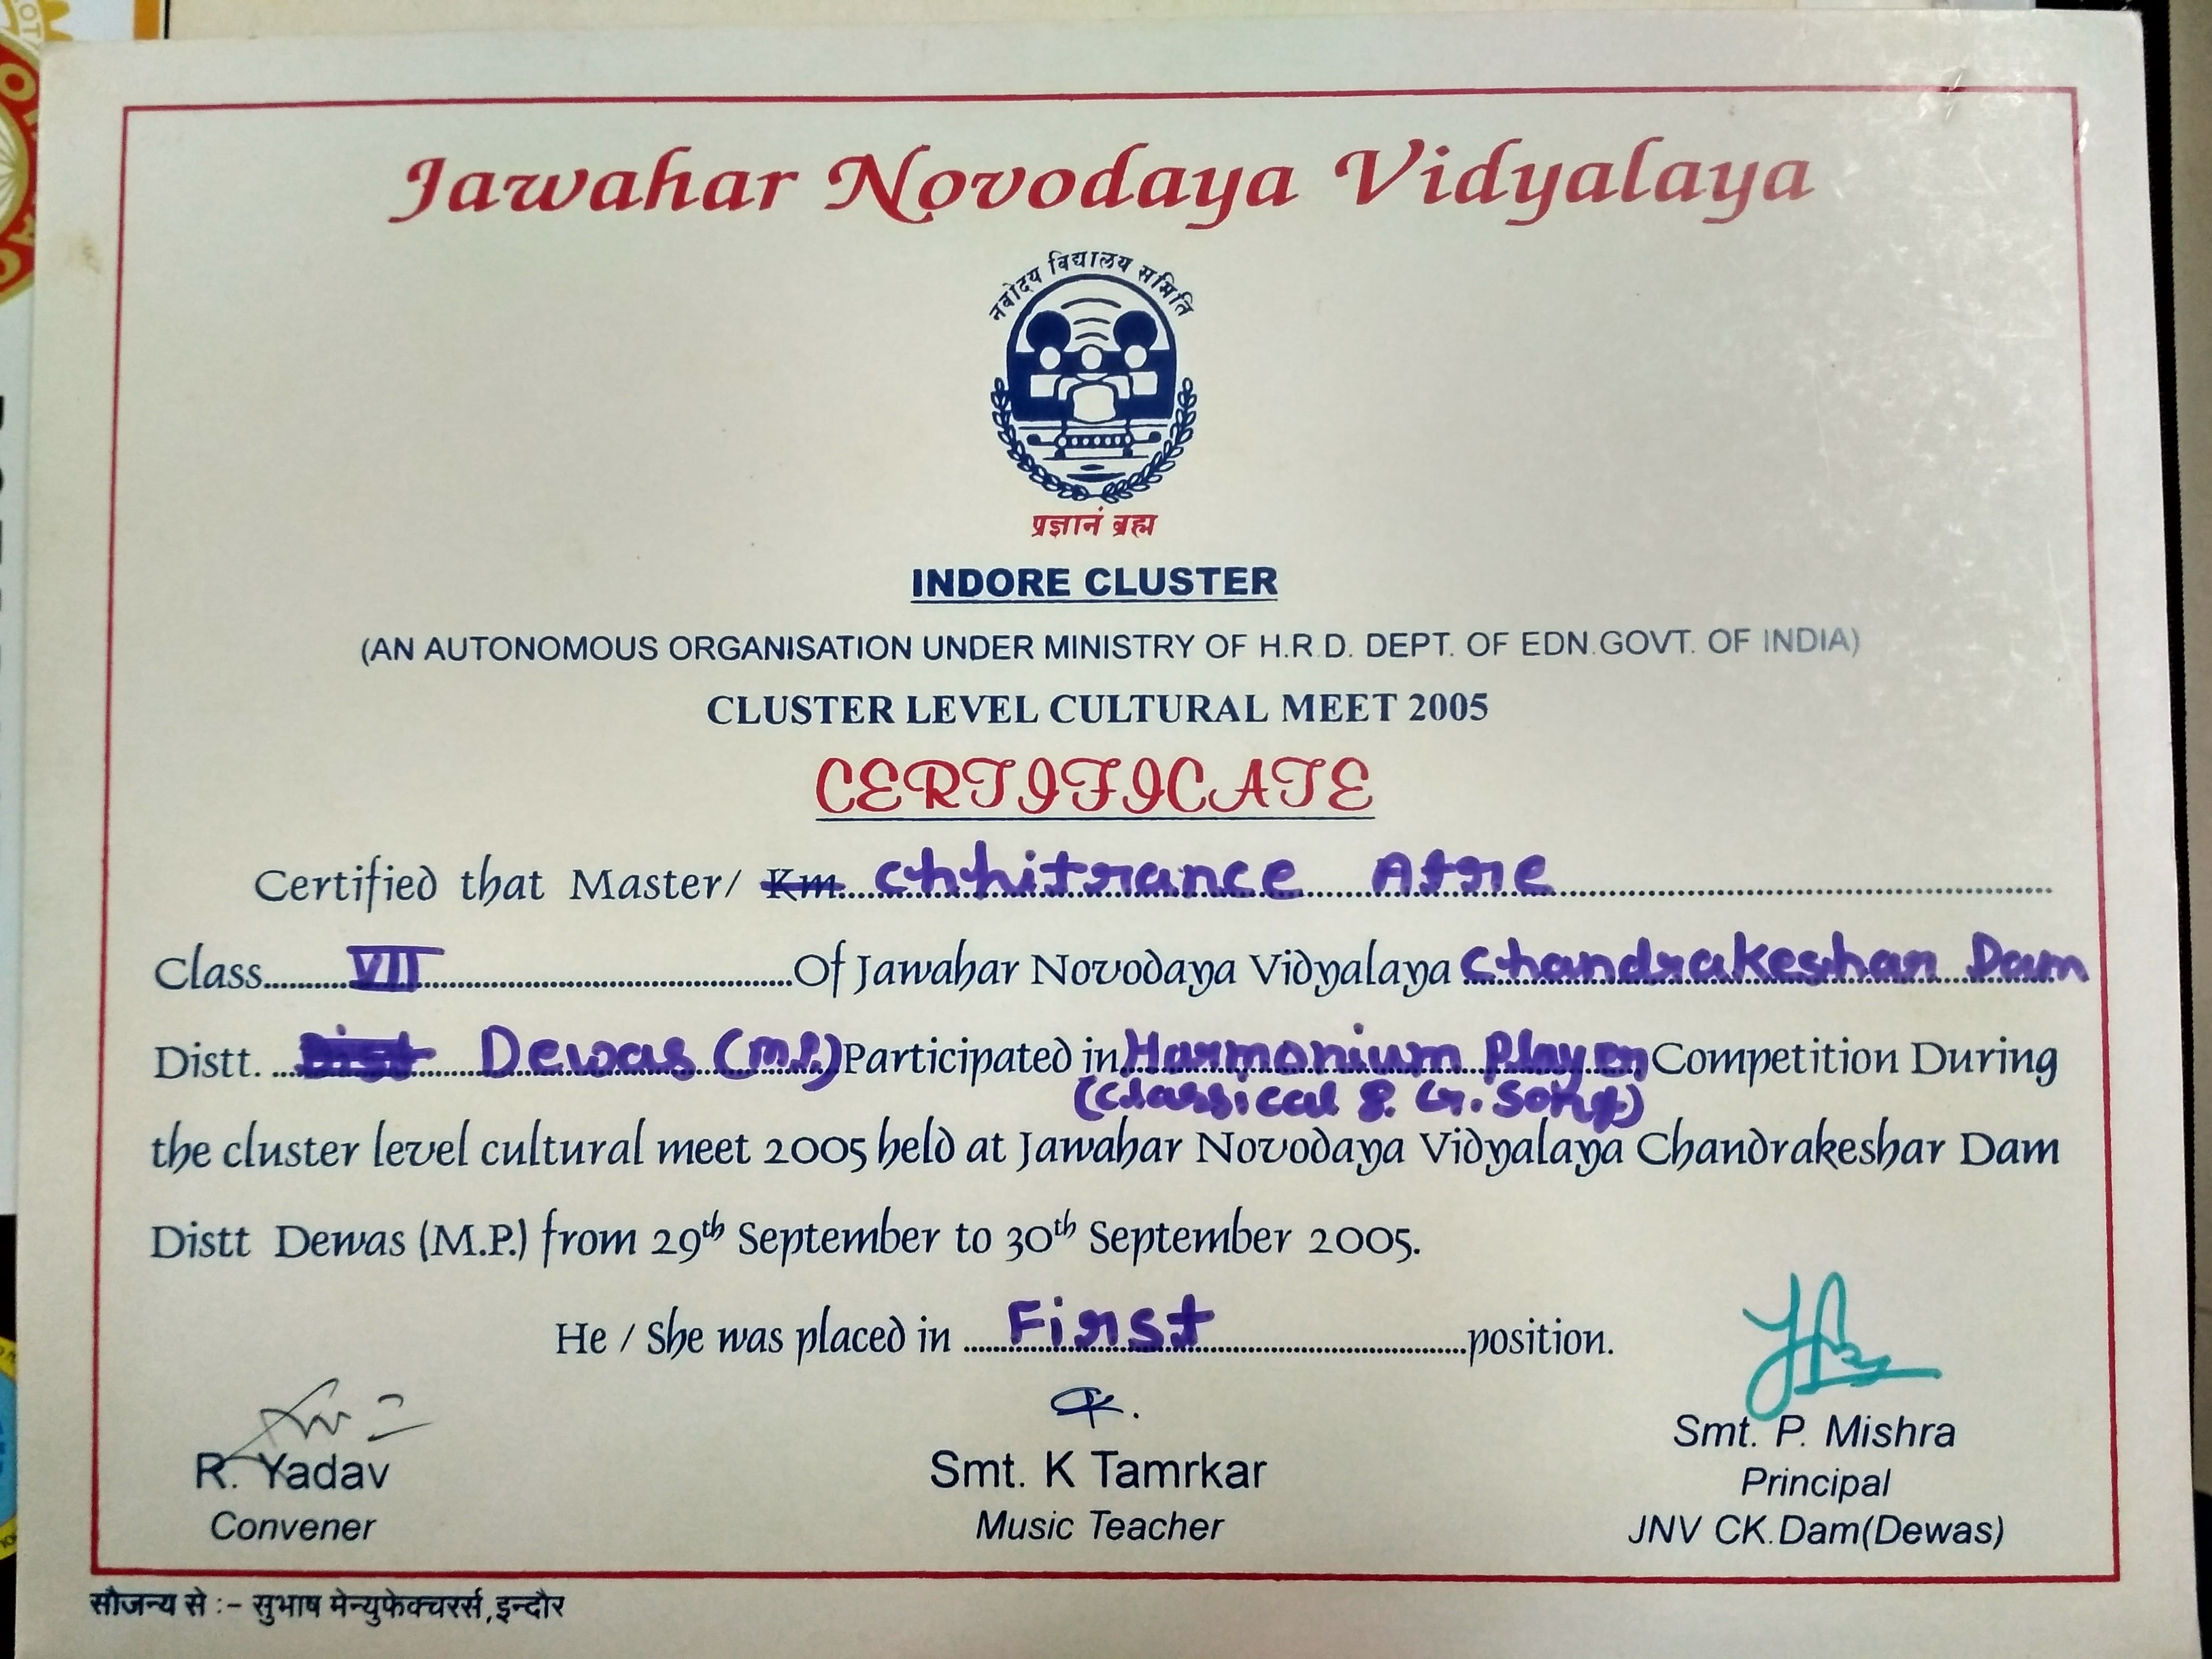 Jawahar Novodaya Vidyalaya
नवोदय विद्यालय समिति
प्रज्ञानं ब्रह्म
INDORE CLUSTER
(AN AUTONOMOUS ORGANISATION UNDER MINISTRY OF H.R.D. DEPT. OF EDN.GOVT. OF INDIA)
CLUSTER LEVEL CULTURAL MEET 2005
CERTIFICATE
Certified that Master/ Km. Chhitrance Atre
Class VII Of Jawahar Novodaya Vidyalaya Chandrakeshar Dam
Distt. Dist Dewas (M.P.) Participated in Harmonium Player Competition During
(Classical & G. Song)
the cluster level cultural meet 2005 held at Jawahar Novodaya Vidyalaya Chandrakeshar Dam
Distt Dewas (M.P.) from 29th September to 30th September 2005.
He / She was placed in First position.
R. Yadav
Convener
Smt. K Tamrkar
Music Teacher
Smt. P. Mishra
Principal
JNV CK.Dam(Dewas)
सौजन्य से :- सुभाष मेन्युफेक्चरर्स, इन्दौर